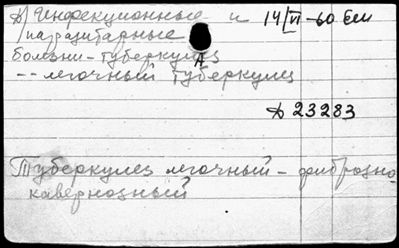 Инфекционные и 14/VI-60
паразитарные
болезни - туберкулез
-- легочный туберкулез
23283
Туберкулез легочный - фиброзно-
кавернозный